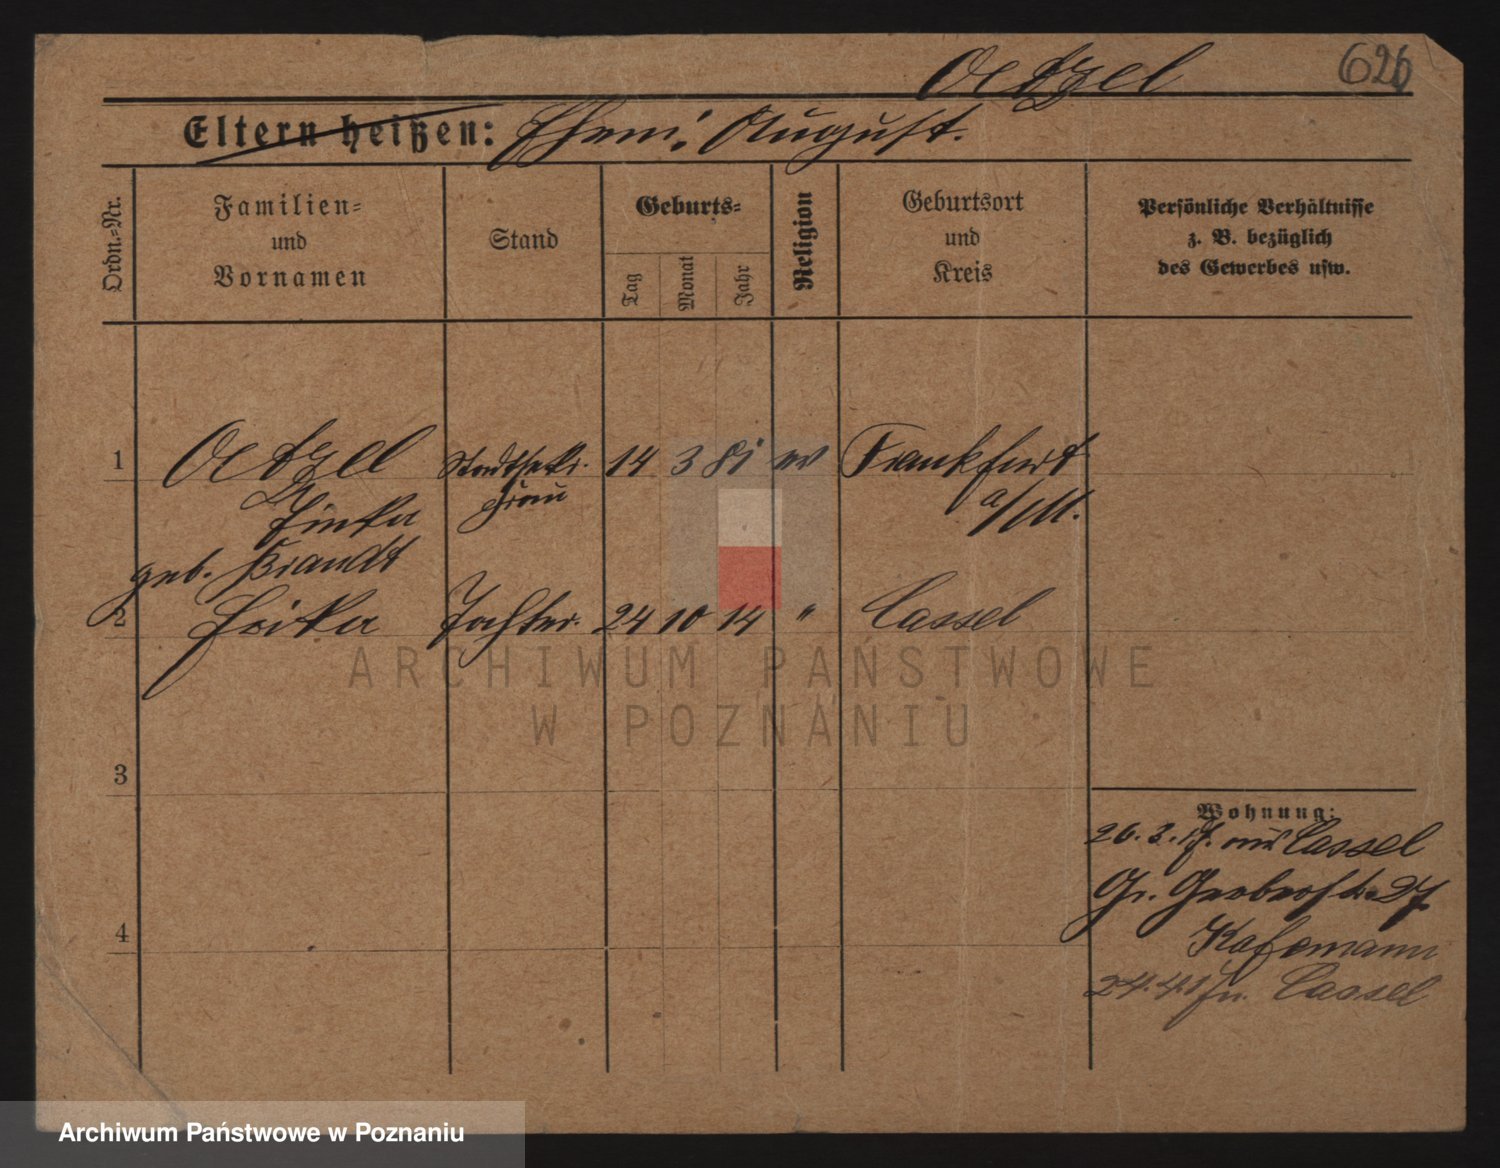 Oetzel 626
Eltern heißen: Ehem: August.
Ordn.=Nr.
Familien=
und
Vornamen
Stand
Geburts=
Tag
Monat
Jahr
Religion
Geburtsort
und
Kreis
Persönliche Verhältnisse
z. B. bezüglich
des Gewerbes usw.
1 Oetzel Stadtsekr. 14 3 81 ev Frankfurt
Frau a/M.
geb. Brandt
2 Erika Tochter. 24 10 14 " Cassel
3
4
Wohnung:
26. 3. 17. aus Cassel
Gr. Gerberstr. 27.
Kafemann
24. 4. 17 n. Cassel
ARCHIWUM PAŃSTWOWE
W POZNANIU
Archiwum Państwowe w Poznaniu